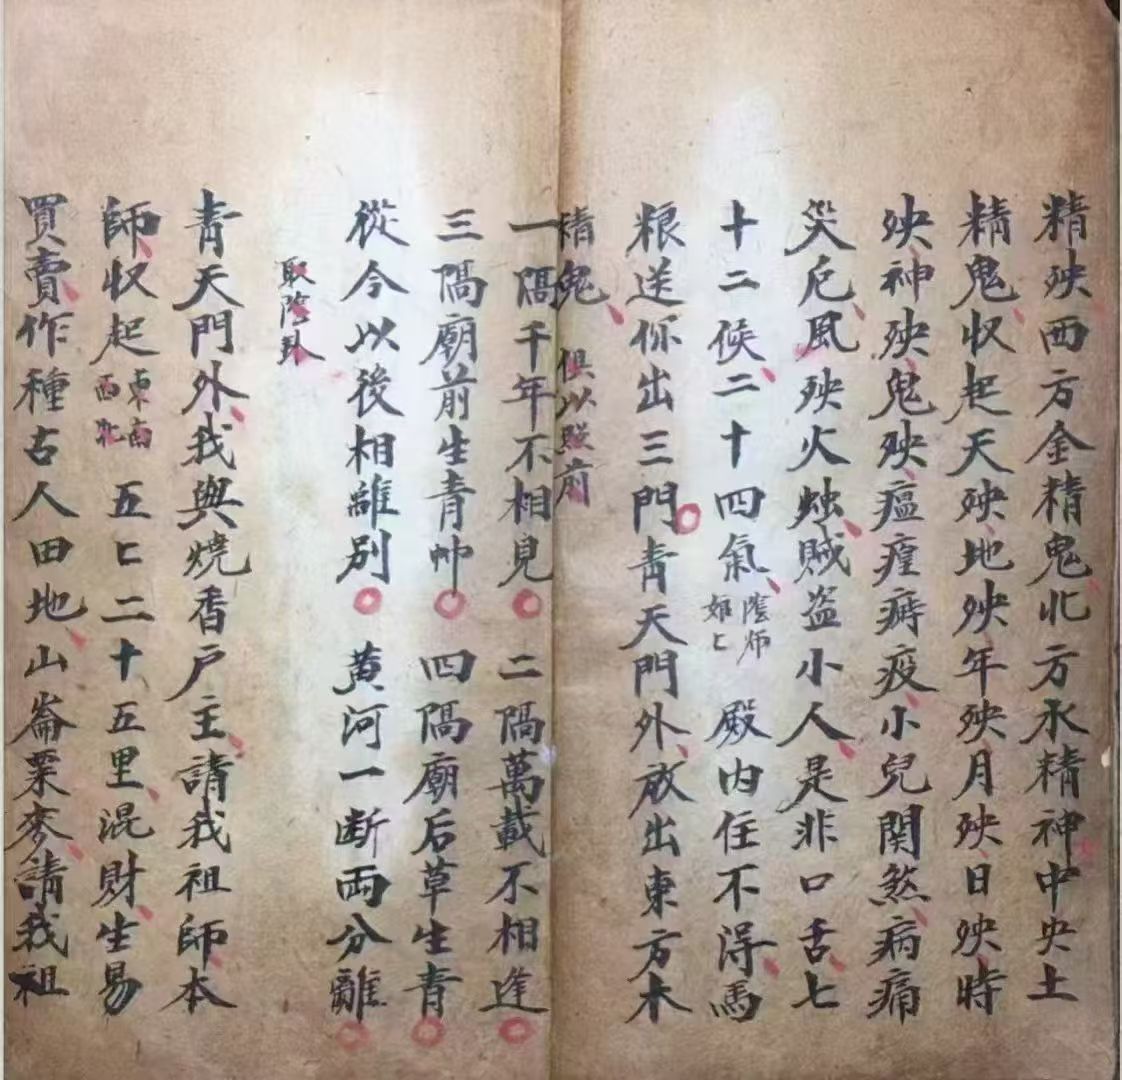 精殃西方金精鬼北方水精神中央土
精鬼收起天殃地殃年殃月殃日殃時
殃神殃鬼殃瘟瘽痹疫小兒関煞病痛
災厄風殃火蚀賊盗小人是非口舌七
十二候二十四氣陰师如匕殿内住不淂馬
粮送你出三門青天門外放出東方木
精鬼俱以殿前
一隔千年不相見二隔萬載不相逢
三隔廟前生青帅四隔廟后草生青
從今以後相離别黄河一断両分離
取陰卦
青天門外我與燒香户主請我祖師本
師收起東南西北五匕二十五里混財生易
買賣作種古人田地山崙粟麥請我祖